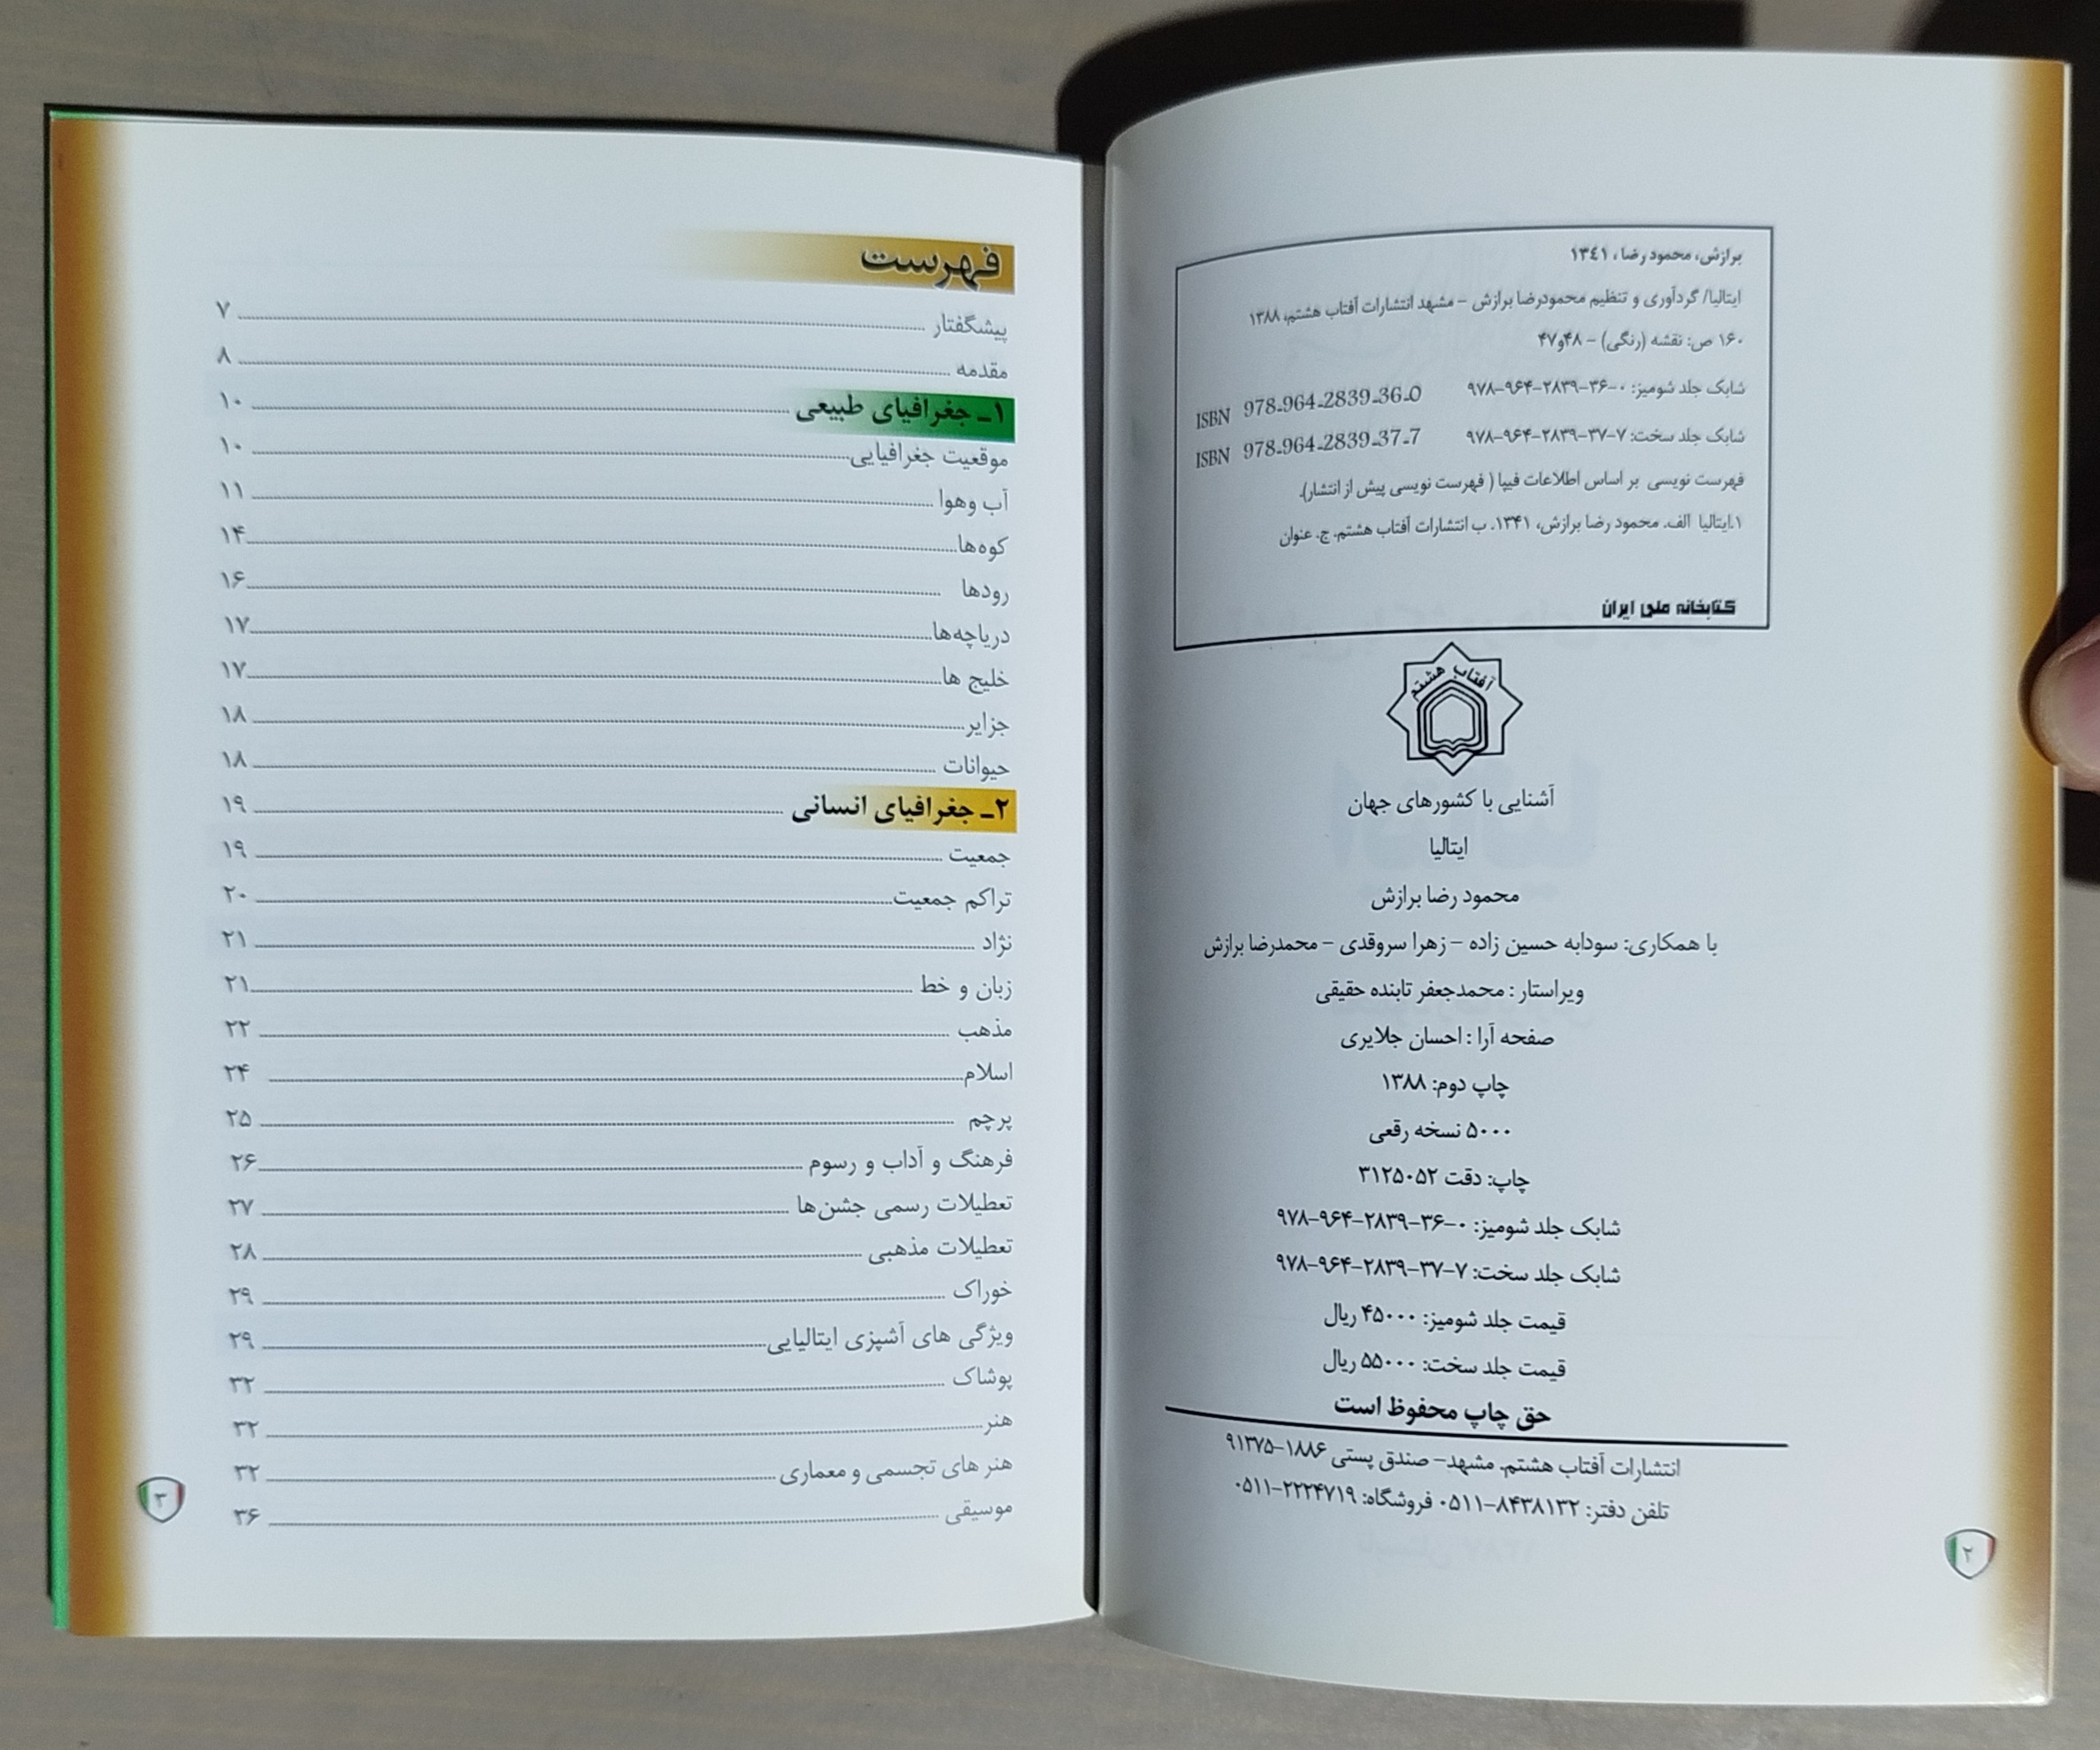 برازش، محمود رضا، ۱۳٤۱
ایتالیا/ گردآوری و تنظیم محمودرضا برازش – مشهد انتشارات آفتاب هشتم، ۱۳۸۸
۱۶۰ ص: نقشه (رنگی) – ۴۸و۴۷
شابک جلد شومیز: ۰-۳۶-۲۸۳۹-۹۶۴-۹۷۸ ISBN 978-964-2839-36-0
شابک جلد سخت: ۷-۳۷-۲۸۳۹-۹۶۴-۹۷۸ ISBN 978-964-2839-37-7
فهرست نویسی بر اساس اطلاعات فیپا ( فهرست نویسی پیش از انتشار).
۱.ایتالیا الف. محمود رضا برازش، ۱۳۴۱. ب انتشارات آفتاب هشتم. ج. عنوان
کتابخانه ملی ایران
آفتاب هشتم
آشنایی با کشورهای جهان
ایتالیا
محمود رضا برازش
با همکاری: سودابه حسین زاده – زهرا سروقدی – محمدرضا برازش
ویراستار : محمدجعفر تابنده حقیقی
صفحه آرا : احسان جلایری
چاپ دوم: ۱۳۸۸
۵۰۰۰ نسخه رقعی
چاپ: دقت ۳۱۲۵۰۵۲
شابک جلد شومیز: ۰-۳۶-۲۸۳۹-۹۶۴-۹۷۸
شابک جلد سخت: ۷-۳۷-۲۸۳۹-۹۶۴-۹۷۸
قیمت جلد شومیز: ۴۵۰۰۰ ریال
قیمت جلد سخت: ۵۵۰۰۰ ریال
حق چاپ محفوظ است
انتشارات آفتاب هشتم. مشهد- صندق پستی ۱۸۸۶-۹۱۳۷۵
تلفن دفتر: ۸۴۳۸۱۳۲-۰۵۱۱ فروشگاه: ۲۲۲۴۷۱۹-۰۵۱۱
۲
فهرست
پیشگفتار ۷
مقدمه ۸
۱ـ جغرافیای طبیعی ۱۰
موقعیت جغرافیایی ۱۰
آب وهوا ۱۱
کوه‌ها ۱۴
رودها ۱۶
دریاچه‌ها ۱۷
خلیج ها ۱۷
جزایر ۱۸
حیوانات ۱۸
۲ـ جغرافیای انسانی ۱۹
جمعیت ۱۹
تراکم جمعیت ۲۰
نژاد ۲۱
زبان و خط ۲۱
مذهب ۲۲
اسلام ۲۴
پرچم ۲۵
فرهنگ و آداب و رسوم ۲۶
تعطیلات رسمی جشن‌ها ۲۷
تعطیلات مذهبی ۲۸
خوراک ۲۹
ویژگی های آشپزی ایتالیایی ۲۹
پوشاک ۳۲
هنر ۳۲
هنر های تجسمی و معماری ۳۲
موسیقی ۳۶
۳